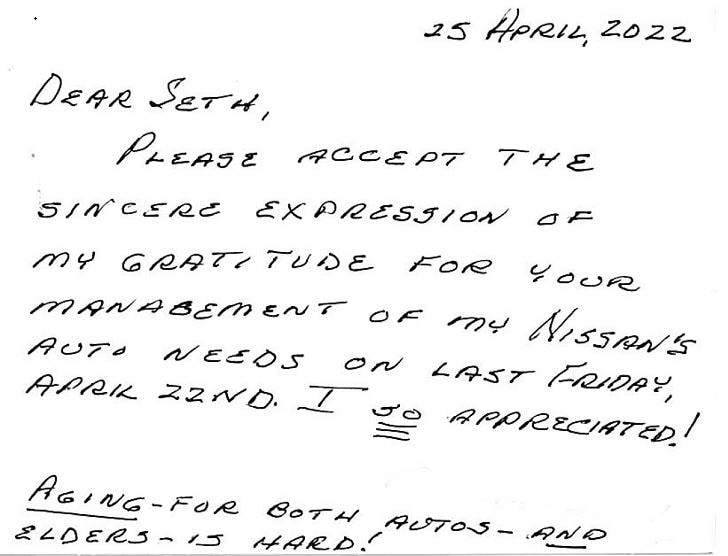 25 APRIL, 2022
DEAR SETH,
PLEASE ACCEPT THE
SINCERE EXPRESSION OF
MY GRATITUDE FOR YOUR
MANAGEMENT OF MY NISSAN'S
AUTO NEEDS ON LAST FRIDAY,
APRIL 22ND. I SO APPRECIATED!
AGING-FOR BOTH AUTOS-AND
ELDERS-IS HARD!